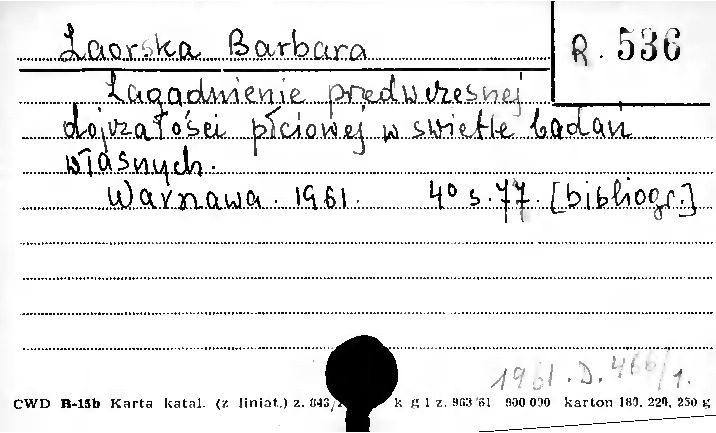 Zaorska Barbara
R. 536
Zagadnienie przedwczesnej
dojrzałości płciowej w świetle badań
własnych.
Warszawa. 1961. 4° s. 77. [bibliogr.]
1961. D. 466/1.
CWD B-15b Karta katal. (z liniat.) z. 843/ k g 1 z. 963/61 800 000 karton 180, 220, 250 g